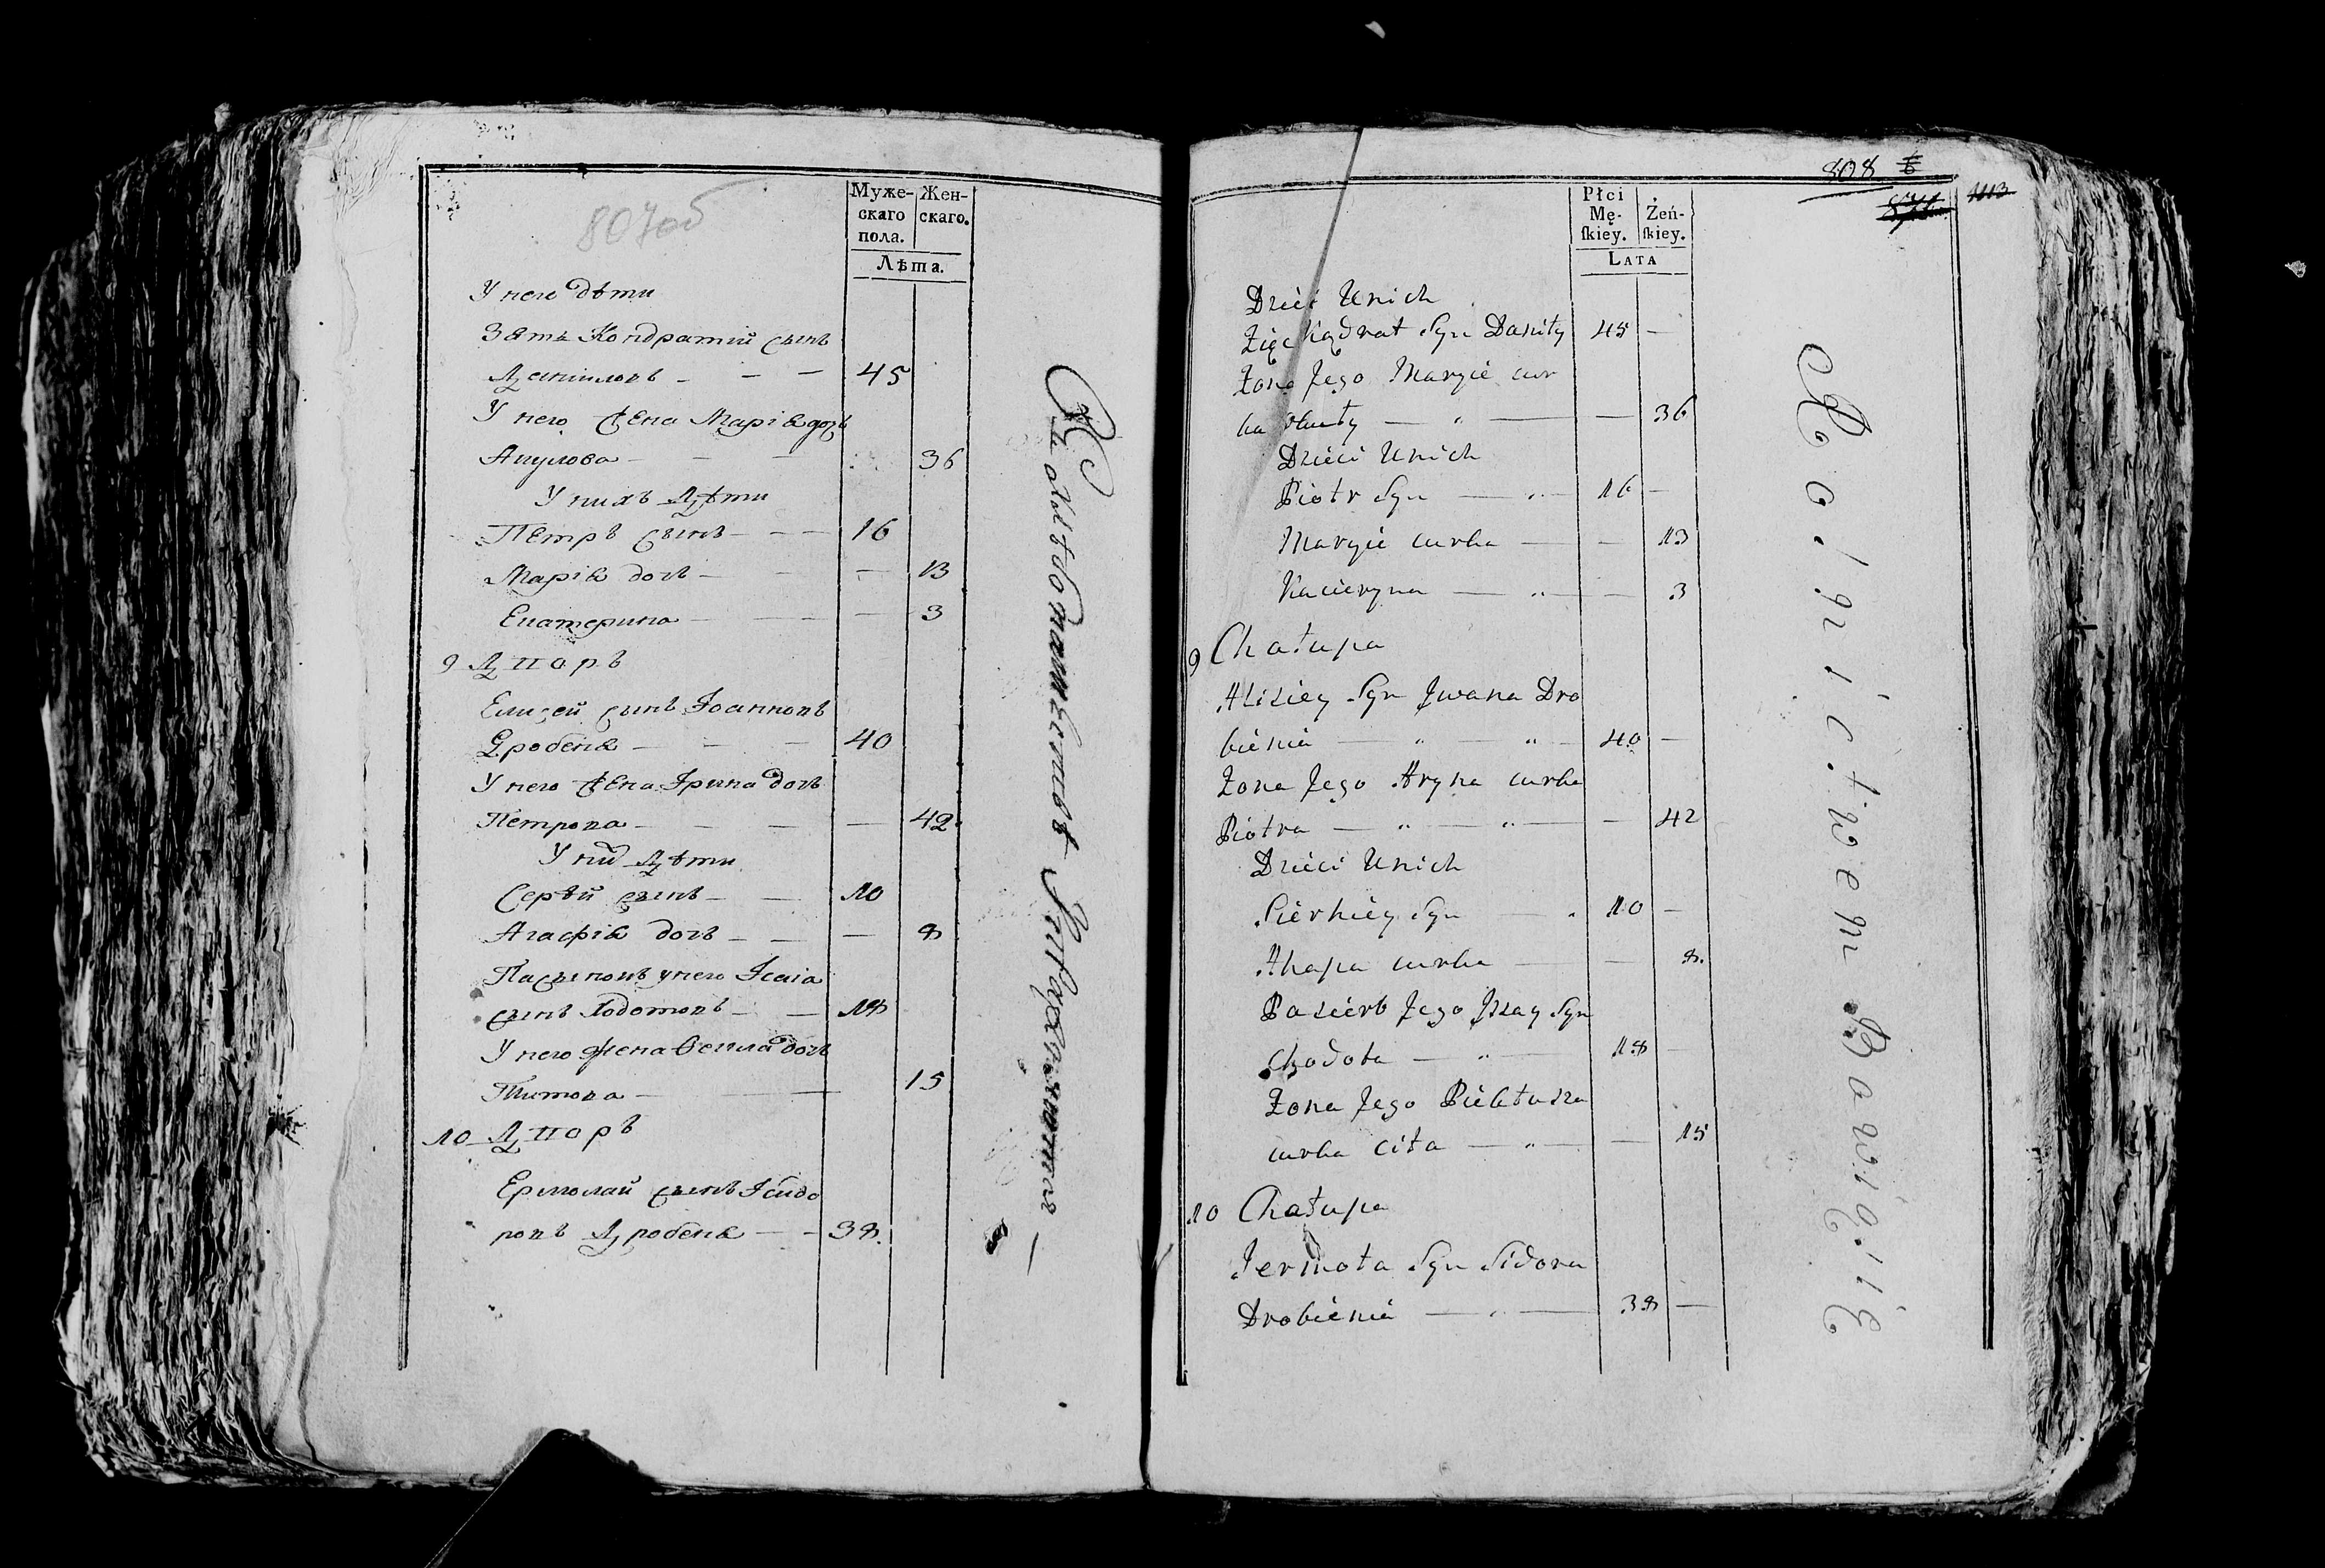 807об
Муже-
скаго
пола.
Жен-
скаго.
Лѣта.
У него дѣти
Зять Кондратий сынъ
Даниловъ - - - 45
У него жена Марія дочь
Акулова - - - 36
У нихъ Дѣти
Петръ сынъ - - - 16
Марія дочь - - — 13
Екатерина - - - — 3
9 Дворъ
Елисей сынъ Іоанновъ
Дробеня - - - 40
У него жена Ірина дочь
Петрова - - - — 42
У них Дѣти
Сергѣй сынъ - - 10
Агафія дочь - - — 8
Пасынокъ у него Ісаіа
сынъ Ходотовъ - - 18
У него жена Ѳекла дочь
Титова - — 15
10 Дворъ
Ермолай сынъ Ісидо
ровъ Дробеня - - 38.
808
1113
Płci
Mę-
ſkiey.
Żeń-
ſkiey.
LATA
Dzieci Unich
Zięć Kądrat Syn Daniły 45 —
Żona Jego Maryie cur
ka — " — — 36
Dzieci Unich
Piotr Syn — " — 16 —
Maryie curka — — 13
Kacieryna — " — — 3
9 Chałupa
Alisiey Syn Jwana Dro
bienia — " — " — 40 —
Żona Jego Aryna curka
Piotra — " — " — — 42
Dzieci Unich
Sierhiey Syn — " 10 —
Ahapa curka — — 8.
Pasierb Jego Jsay Syn
Chodota — " — 18 —
Żona Jego
curka Cita — " — — 15
10 Chałupa
Jermoła Syn Sidora
Drobienia — " — 38 —